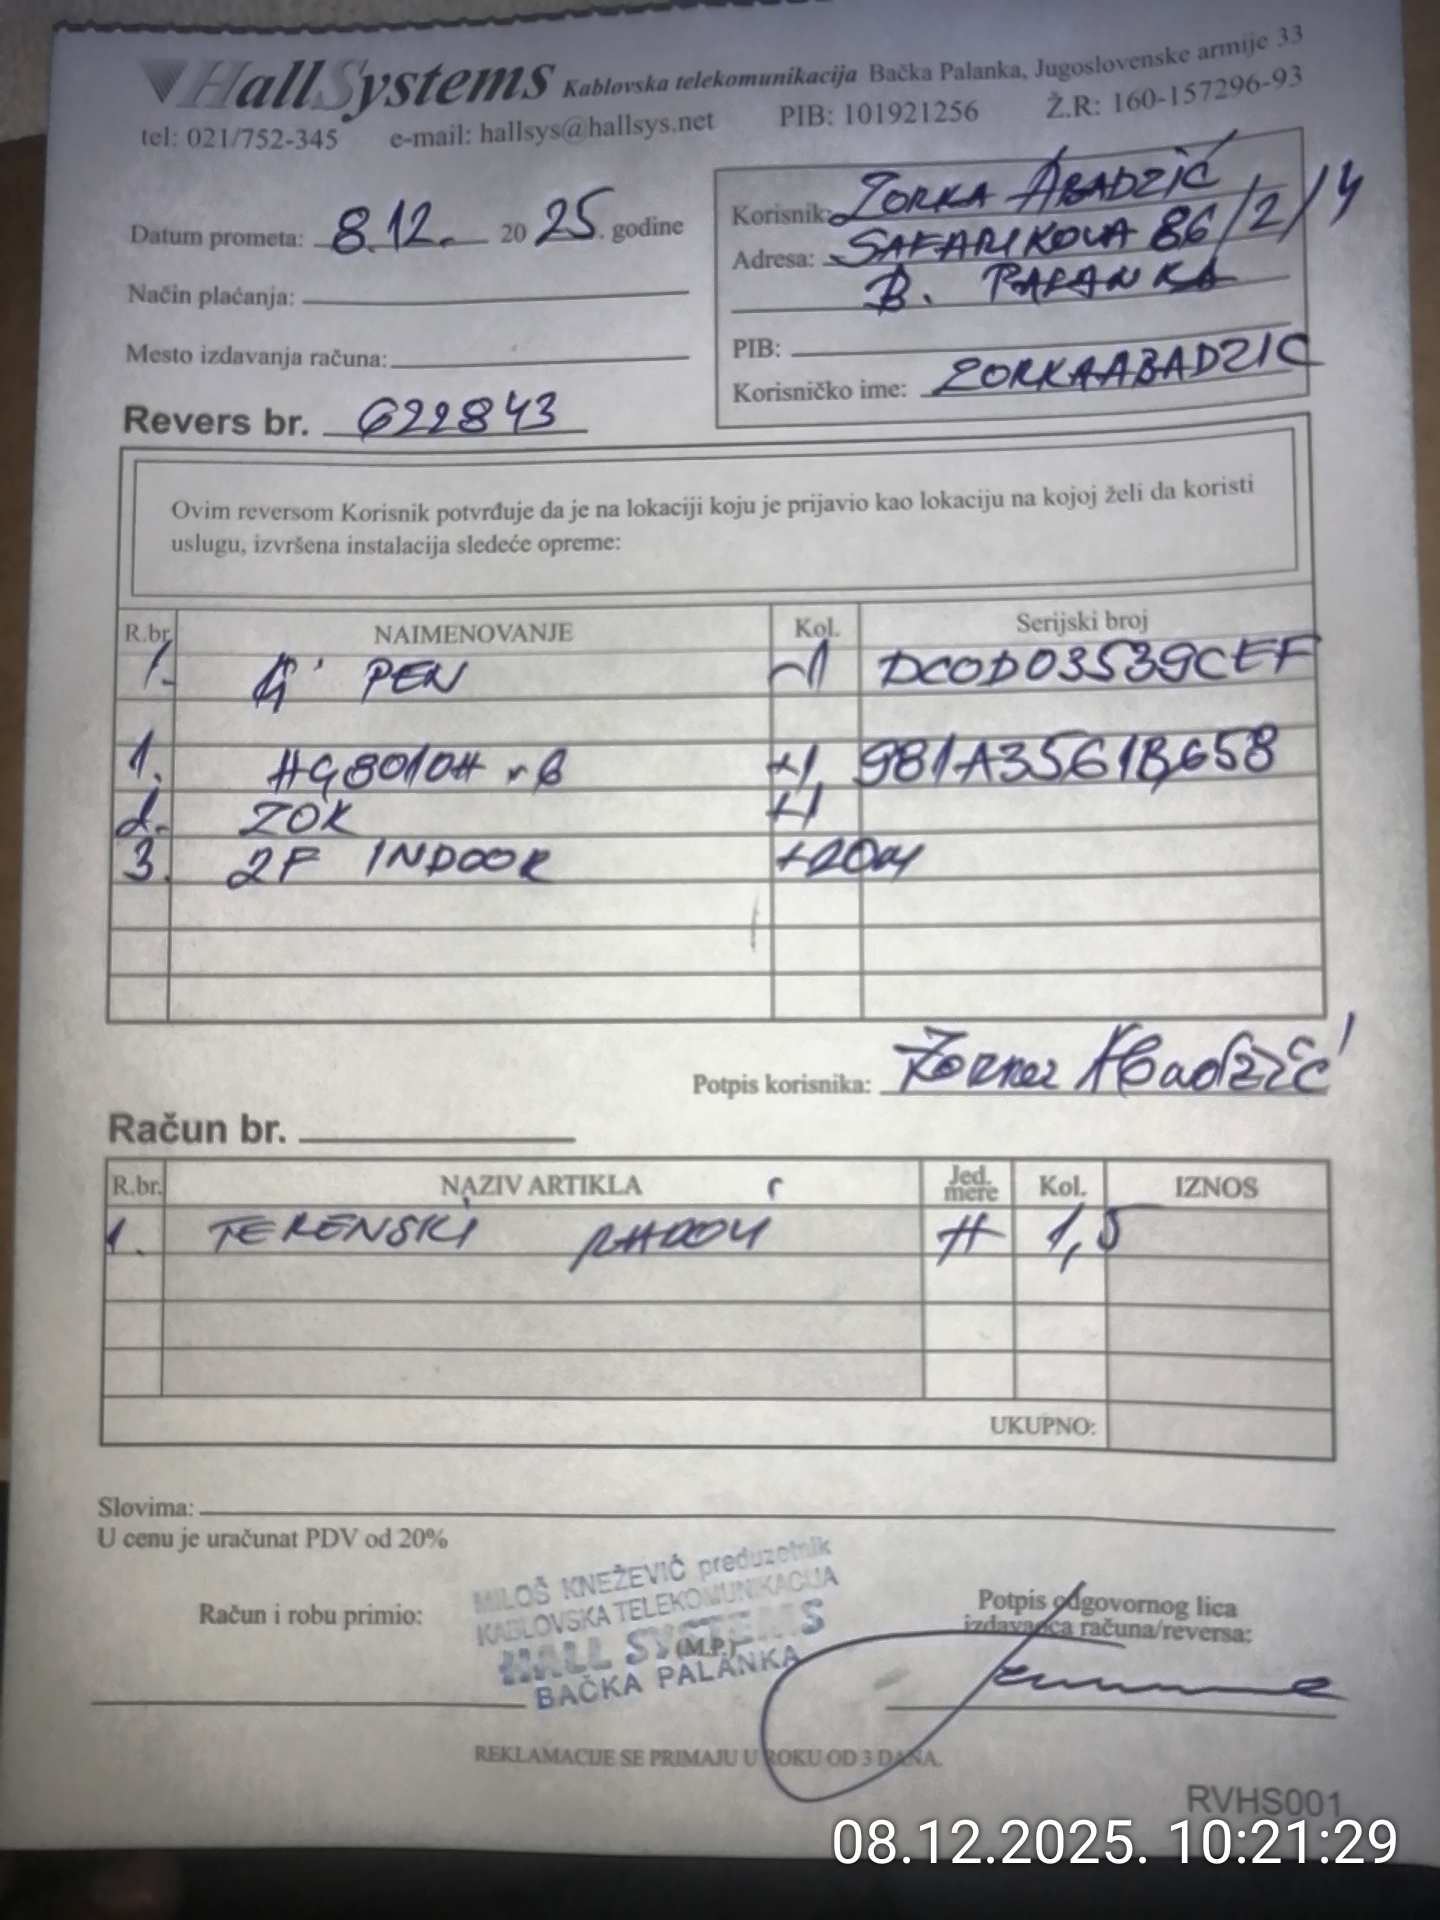 HallSystems Kablovska telekomunikacija Bačka Palanka, Jugoslovenske armije 33
tel: 021/752-345 e-mail: hallsys@hallsys.net PIB: 101921256 Ž.R: 160-157296-93
Datum prometa: 8.12. 20 25. godine
Korisnik: ZORKA ABADZIĆ
Adresa: SAFARIKOVA 86/2/14
B. PALANKA
Način plaćanja:
Mesto izdavanja računa:
PIB:
Korisničko ime: ZORKAABADZIC
Revers br. 622843
Ovim reversom Korisnik potvrđuje da je na lokaciji koju je prijavio kao lokaciju na kojoj želi da koristi
uslugu, izvršena instalacija sledeće opreme:
R.br. NAIMENOVANJE Kol. Serijski broj
1. PEN -1 DCOD03539CEF
1. HG8010H v6 +1 981A3561B658
2. ZOK +1
3. 2F INDOOR +20M
Potpis korisnika: Zorka Abadzić
Račun br.
R.br. NAZIV ARTIKLA Jed. mere Kol. IZNOS
1. TERENSKI RADOVI H 1,5
UKUPNO:
Slovima:
U cenu je uračunat PDV od 20%
Račun i robu primio:
MILOŠ KNEŽEVIĆ preduzetnik
KABLOVSKA TELEKOMUNIKACIJA
HALL SYSTEMS
(M.P.)
BAČKA PALANKA
Potpis odgovornog lica
izdavaoca računa/reversa:
REKLAMACIJE SE PRIMAJU U ROKU OD 3 DANA.
RVHS001
08.12.2025. 10:21:29